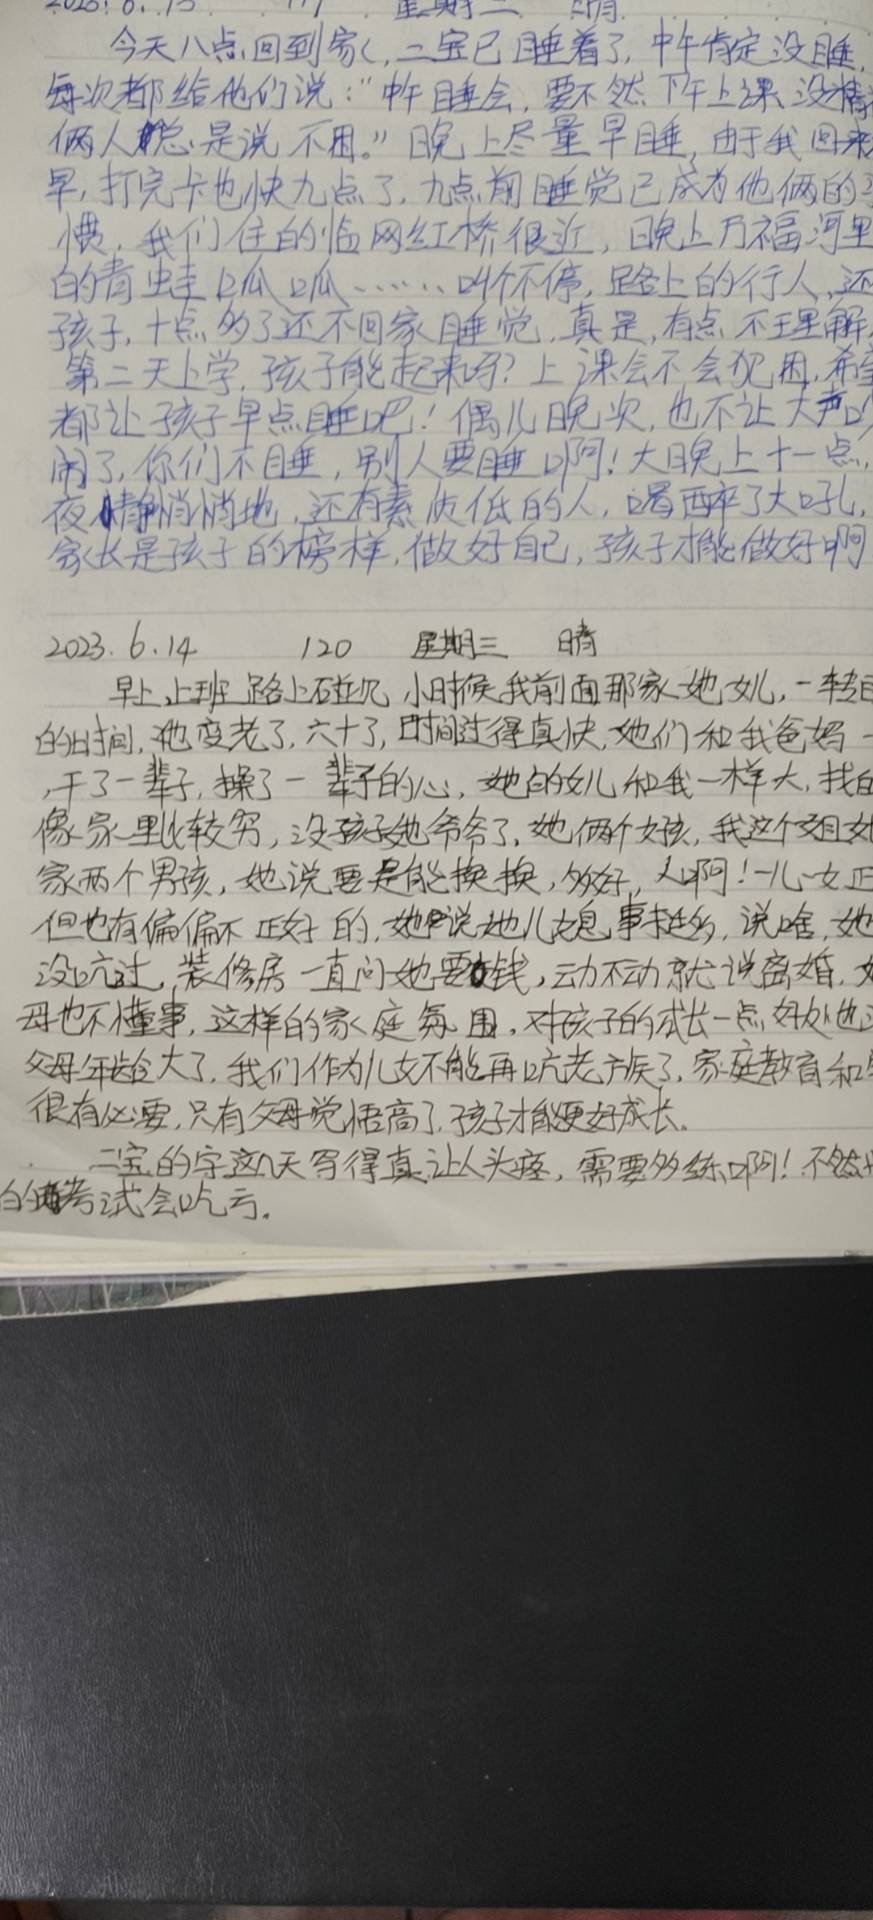 2023.6.13 119 星期二 晴
今天八点回到家,二宝已睡着了,中午肯定没睡,
每次都给他们说:“中午睡会,要不然下午上课没精
俩人总是说不困。”晚上尽量早睡,由于我回来
早,打完卡也快九点了,九点前睡觉已成为他俩的
惯,我们住的临网红桥很近,晚上万福河里
的青蛙呱呱……叫个不停,路上的行人,还
孩子,十点多了还不回家睡觉,真是,有点不理解,
第二天上学,孩子能起来吗?上课会不会犯困,希望
都让孩子早点睡吧!偶儿晚次,也不让大声
闹了,你们不睡,别人要睡啊!大晚上十一点,
夜静悄悄地,还有素质低的人,喝醉了大吼,
家长是孩子的榜样,做好自己,孩子才能做好啊
2023.6.14 120 星期三 晴
早上上班路上碰见小时候我前面那家她女儿,一转目
的时间,她变老了,六十了,时间过得真快,她们和我爸妈一
,干了一辈子,操了一辈子的心,她的女儿和我一样大,找的
像家里比较穷,没孩子她爷爷了,她俩个女孩,我这个
家两个男孩,她说要是能换换,多好,人啊!一儿一女正
但也有偏偏不正好的,她说她儿媳事挺多,说啥,她
没吭过,装修房一直问她要钱,动不动就说离婚,
母也不懂事,这样的家庭氛围,对孩子的成长一点好处也
父母年龄大了,我们作为儿女不能再坑老族了,家庭教育和
很有必要,只有父母觉悟高了,孩子才能更好成长。
二宝的字这几天写得真让人头疼,需要多练啊!不然
的考试会吃亏。